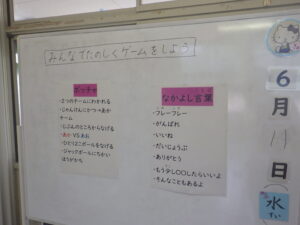 みんなでたのしくゲームをしよう
ボッチャ
・2つのチームにわかれる
・じゃんけんにかつ→あか
チーム
・じぶんのところからなげる
・あか VS あお
・ひとり2こボールをなげる
・ジャックボールにちかい
ほうがかち
なかよし言葉
・フレーフレー
・がんばれ
・いいね
・だいじょうぶ
・ありがとう
・もう少し〇〇したらいいよ
・そんなこともあるよ
6
月
日
水
すい